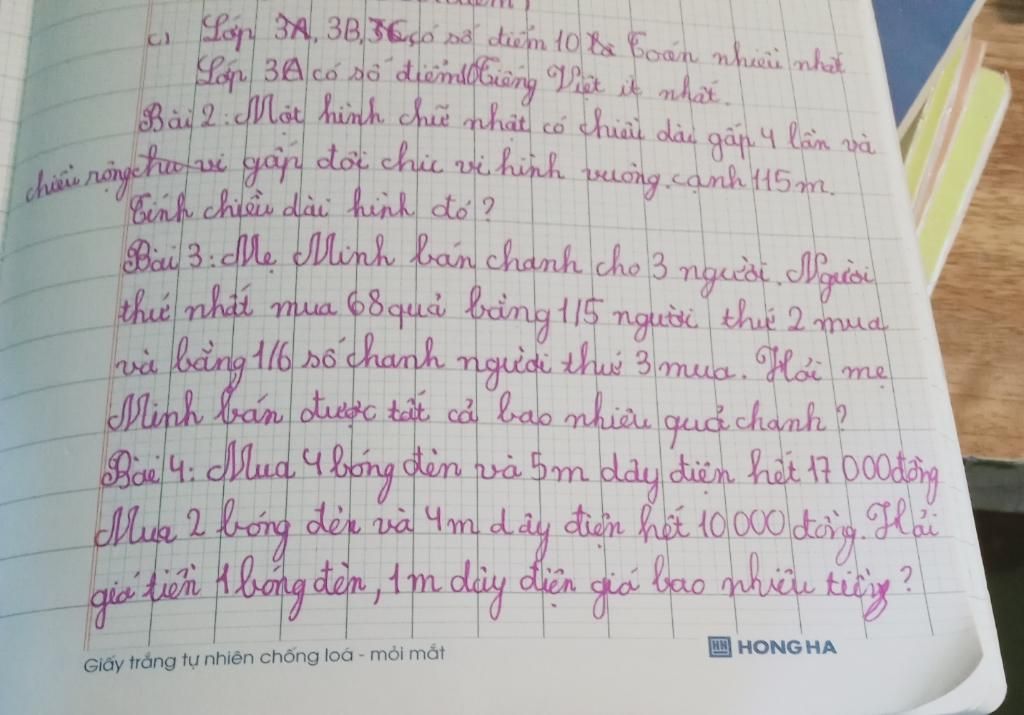 c) Lớp 3A, 3B, 3C có số điểm 10 Toán nhiều nhất
Lớp 3A có số điểm 10 Tiếng Việt ít nhất.
Bài 2: Một hình chữ nhật có chiều dài gấp 4 lần và
chiều rộng chu vi gấp đôi chu vi hình vuông cạnh 115m.
Tính chiều dài hình đó?
Bài 3: Mẹ Minh bán chanh cho 3 người. Người
thứ nhất mua 68 quả bằng 1/5 người thứ 2 mua
và bằng 1/6 số chanh người thứ 3 mua. Hỏi mẹ
Minh bán được tất cả bao nhiêu quả chanh?
Bài 4: Mua 4 bóng đèn và 5m dây điện hết 17 000 đồng
Mua 2 bóng đèn và 4m dây điện hết 10 000 đồng. Hỏi
giá tiền 1 bóng đèn, 1m dây điện giá bao nhiêu tiền?
Giấy trắng tự nhiên chống loá - mỏi mắt
HH HONG HA